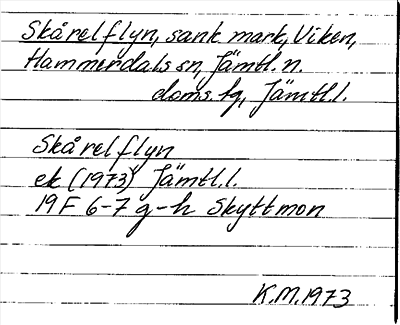 Skårelflyn, sank mark, Viken,
Hammerdals sn, Jämtl. n.
doms. hg, Jämtl.l.
Skårelflyn
ek (1973) Jämtl.l.
19F 6-7 g-h Skyttmon
K.M. 1973